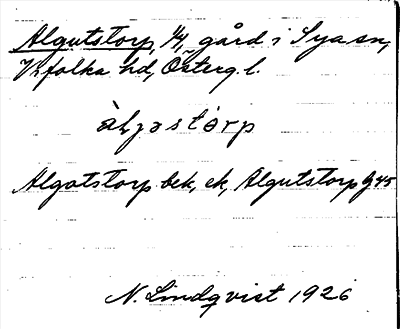 Algutstorp, 1/4, gård i Sya sn,
Vifolka hd, Österg. l.
àḷjəstórp
Algotstorp bek, ek, Algutstorp Gj 45
N. Lindqvist 1926